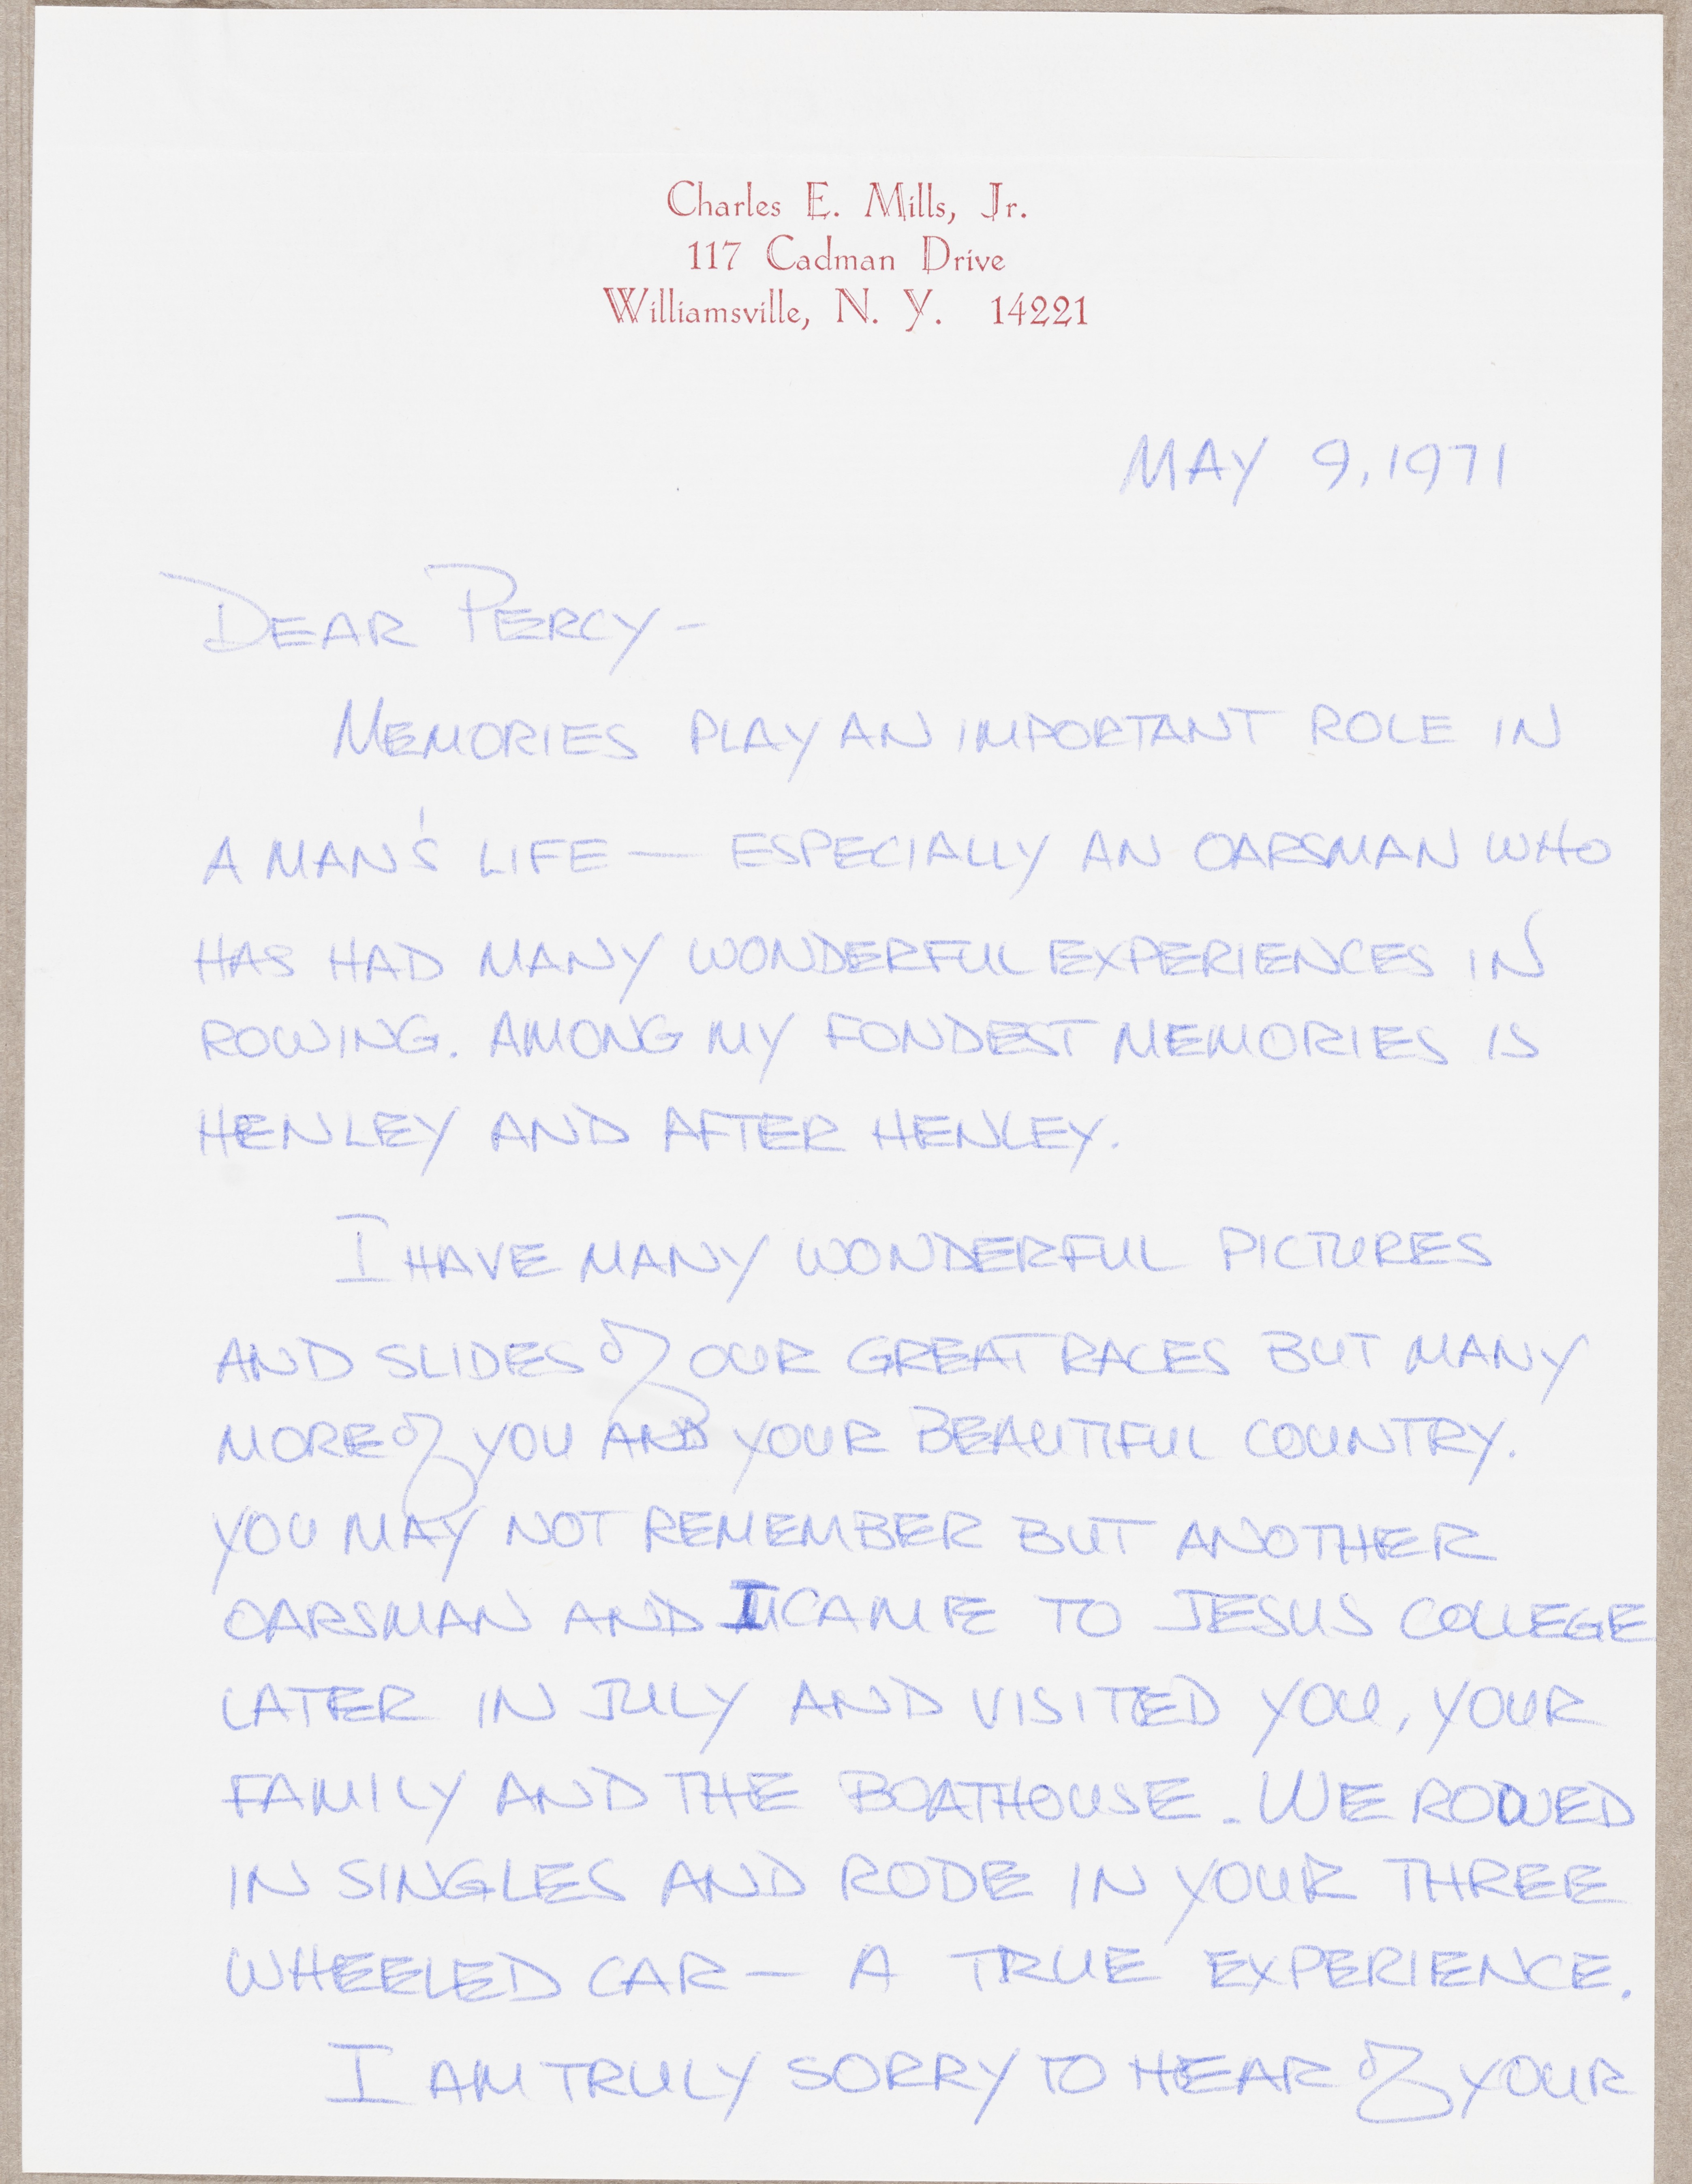 Charles E. Mills, Jr.
117 Cadman Drive
Williamsville, N. Y. 14221
MAY 9, 1971
DEAR PERCY-
MEMORIES PLAY AN IMPORTANT ROLE IN
A MAN'S LIFE — ESPECIALLY AN OARSMAN WHO
HAS HAD MANY WONDERFUL EXPERIENCES IN
ROWING. AMONG MY FONDEST MEMORIES IS
HENLEY AND AFTER HENLEY.
I HAVE MANY WONDERFUL PICTURES
AND SLIDES of OUR GREAT RACES BUT MANY
MORE of YOU AND YOUR BEAUTIFUL COUNTRY.
YOU MAY NOT REMEMBER BUT ANOTHER
OARSMAN AND I CAME TO JESUS COLLEGE
LATER IN JULY AND VISITED YOU, YOUR
FAMILY AND THE BOATHOUSE. WE ROWED
IN SINGLES AND RODE IN YOUR THREE
WHEELED CAR — A TRUE EXPERIENCE.
I AM TRULY SORRY TO HEAR of YOUR